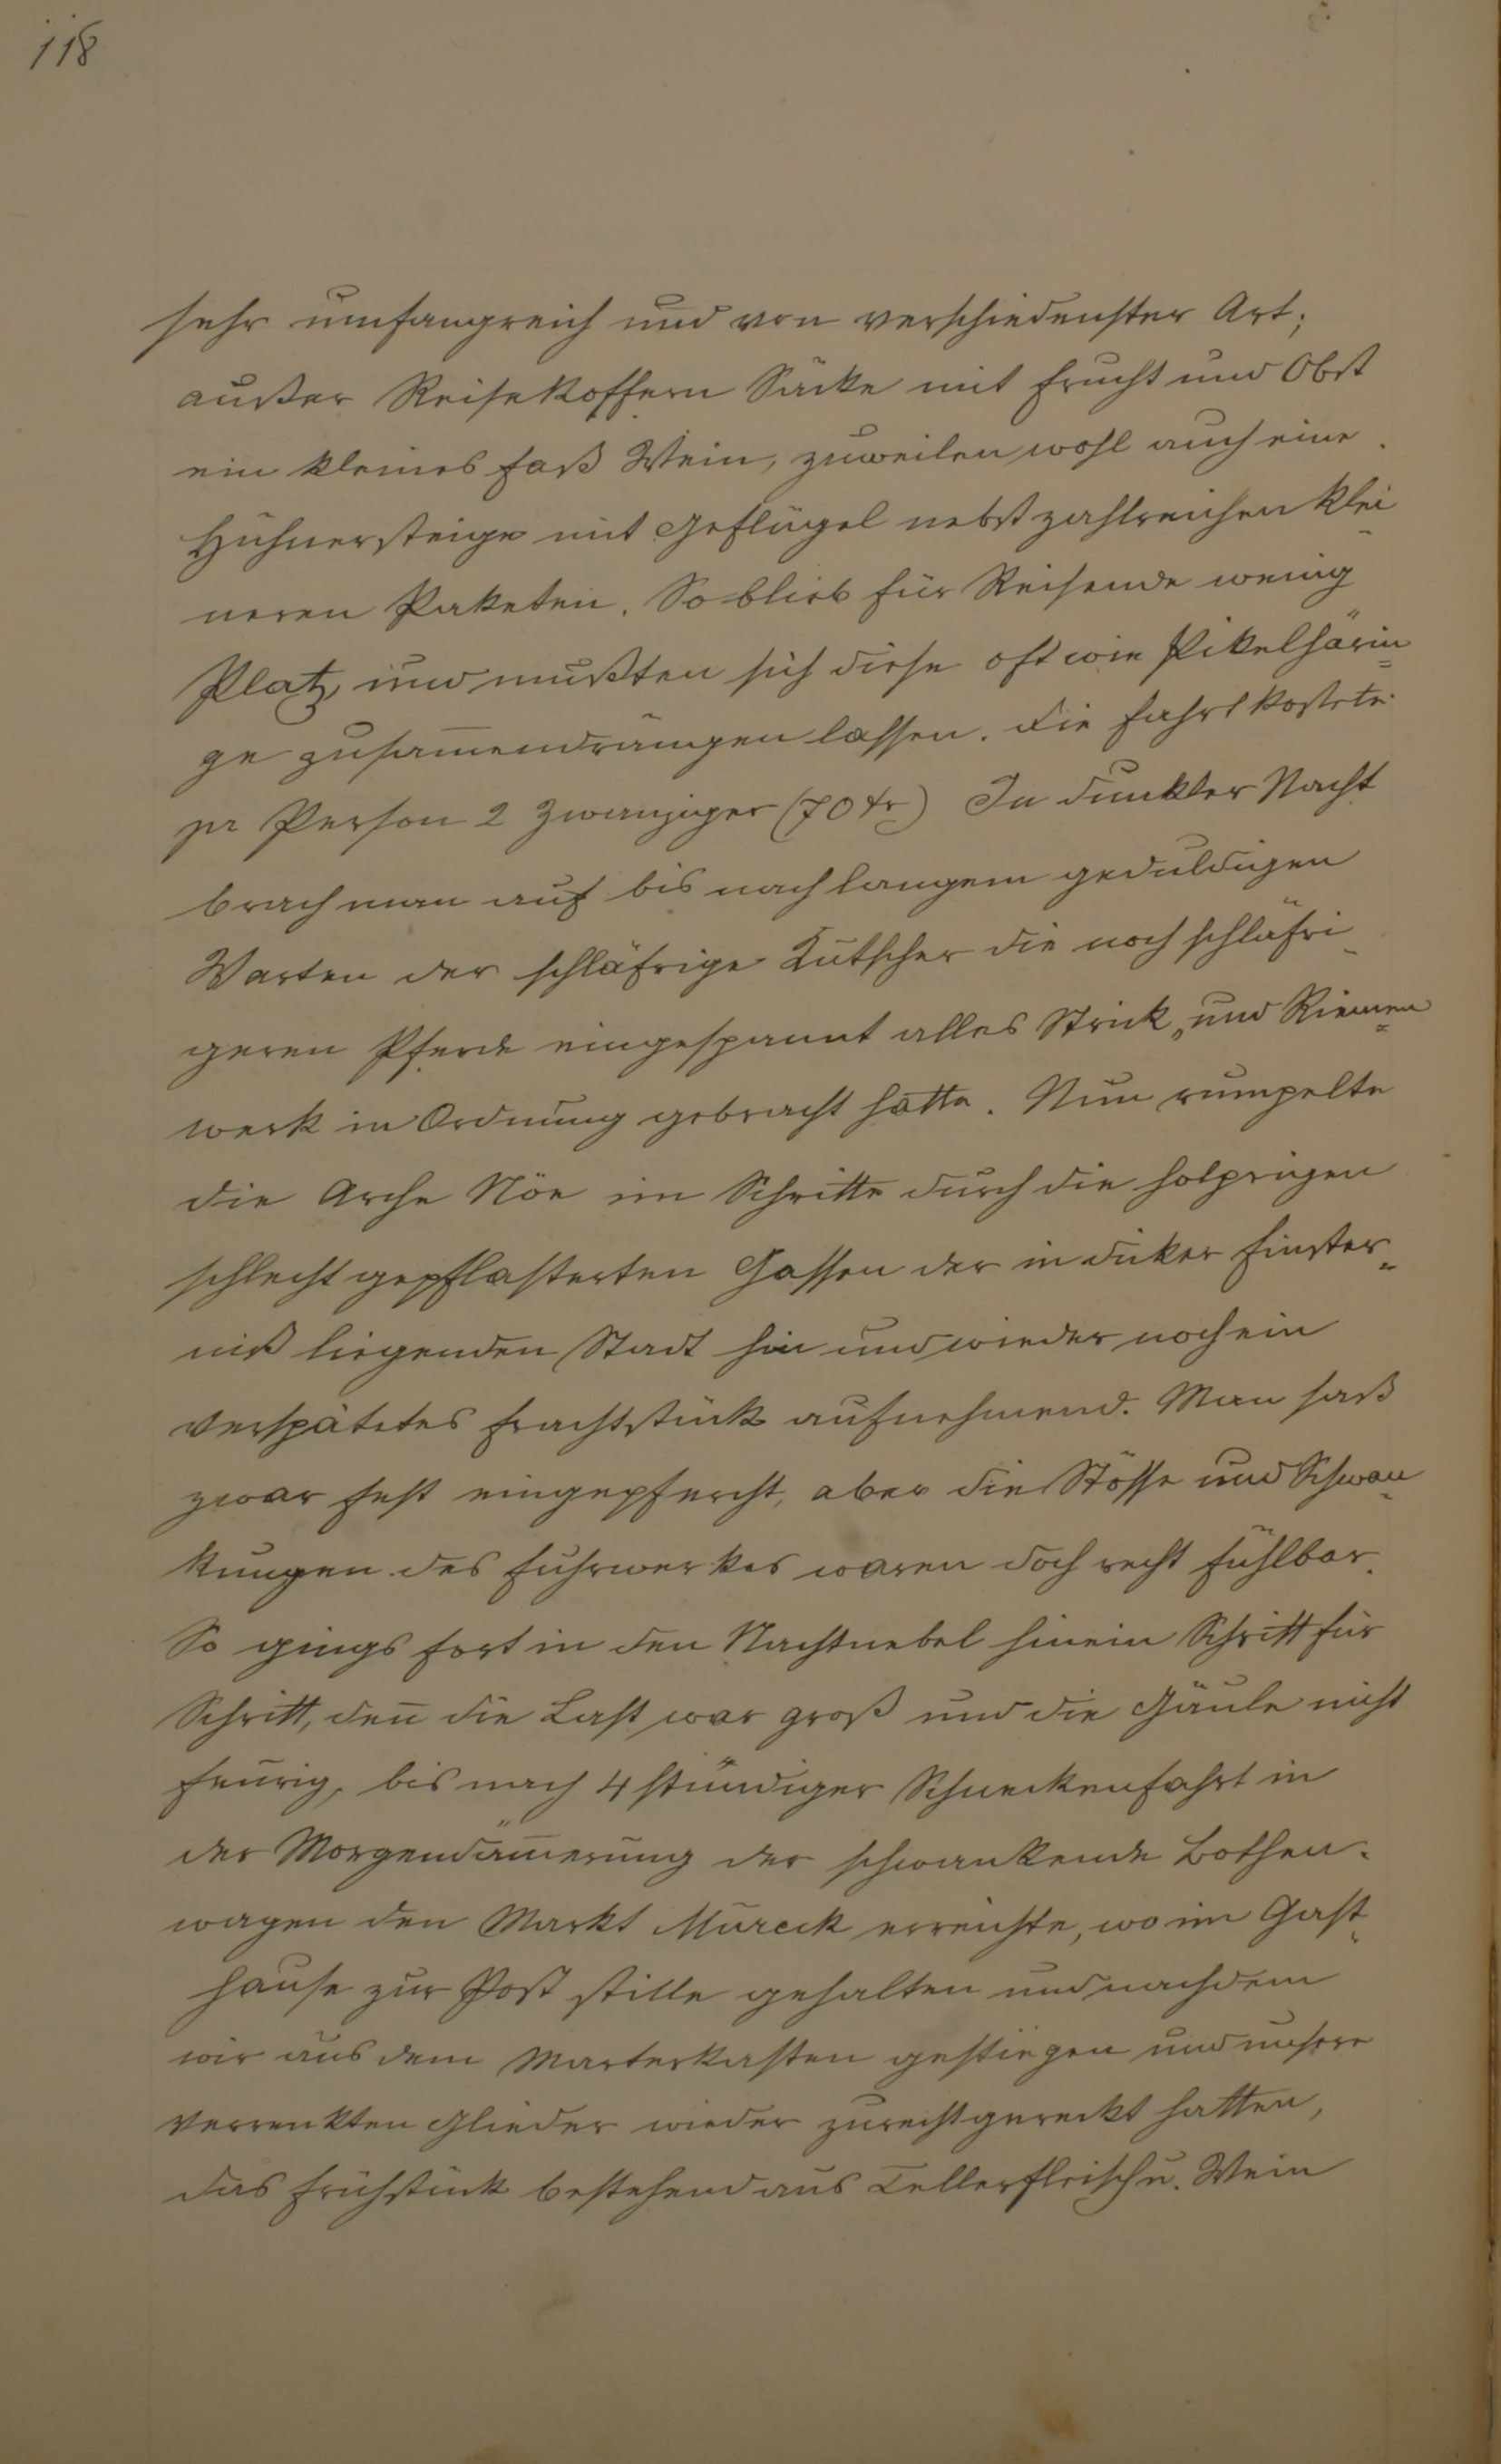 118
sehr umfangreich und von verschiedenster Art;
außer Reisekoffern Säcke mit Frucht und Obst
ein kleines Faß Wein, zuweilen wohl auch eine
Hühnersteige mit Geflügel nebst zahlreichen klei-
neren Paketen. So blieb für Reisende wenig
Platz, und mußten sich diese oft wie Pikelhärin=
ge zusam̅endrängen lassen. Die Fahrt kostete
pr Person 2 Zwanziger (70 kr) In dunkler Nacht
brach man auf bis nach langem geduldigen
Warten der schläfrige Kutscher die noch schläfri-
geren Pferde eingespannt alles Strick- und Riemen=
werk in Ordnung gebracht hatte. Nun rumpelte
die Arche Nöe im Schritte durch die holprigen
schlecht gepflasterten Gassen der in dicker Finster=
niß liegenden Stadt hin und wieder noch ein
verspätetes Frachtstück aufnehmend. Man saß
zwar fest eingepfercht, aber die Stösse und Schwan=
kungen des Fuhrwerkes waren doch recht fühlbar.
So gings fort in den Nachtnebel hinein Schritt für
Schritt, den̅ die Last war groß und die Gäule nicht
feurig, bis nach 4 stündiger Schneckenfahrt in
der Morgendäm̅erung der schwankende Bothen-
wagen den Markt Mureck erreichte, wo im Gast-
hause zur Post stille gehalten und nachdem
wir aus dem Marterkasten gestiegen und unsere
verrenkten Glieder wieder zurechtgereckt hatten,
das Frühstück bestehend aus Tellerfleisch u. Wein